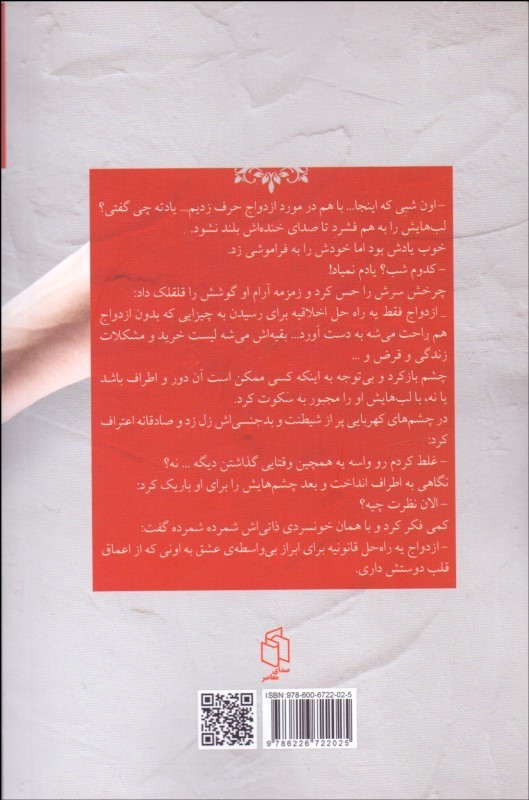 - اون شبی که اینجا... با هم در مورد ازدواج حرف زدیم... یادته چی گفتی؟
لب‌هایش را به هم فشرد تا صدای خنده‌اش بلند نشود.
خوب یادش بود اما خودش را به فراموشی زد.
- کدوم شب؟ یادم نمیاد!
چرخش سرش را حس کرد و زمزمه آرام او گوشش را قلقلک داد:
_ ازدواج فقط یه راه حل اخلاقیه برای رسیدن به چیزایی که بدون ازدواج
هم راحت می‌شه به دست آورد... بقیه‌اش می‌شه لیست خرید و مشکلات
زندگی و قرض و ...
چشم بازکرد و بی‌توجه به اینکه کسی ممکن است آن دور و اطراف باشد
یا نه، با لب‌هایش او را مجبور به سکوت کرد.
در چشم‌های کهربایی پر از شیطنت و بدجنسی‌اش زل زد و صادقانه اعتراف
کرد:
- غلط کردم رو واسه یه همچین وقتایی گذاشتن دیگه ... نه؟
نگاهی به اطراف انداخت و بعد چشم‌هایش را برای او باریک کرد:
- الان نظرت چیه؟
کمی فکر کرد و با همان خونسردی ذاتی‌اش شمرده شمرده گفت:
- ازدواج یه راه‌حل قانونیه برای ابراز بی‌واسطه‌ی عشق به اونی که از اعماق
قلب دوستش داری.
صدای
معاصر
ISBN: 978-600-6722-02-5
9 786226 722025